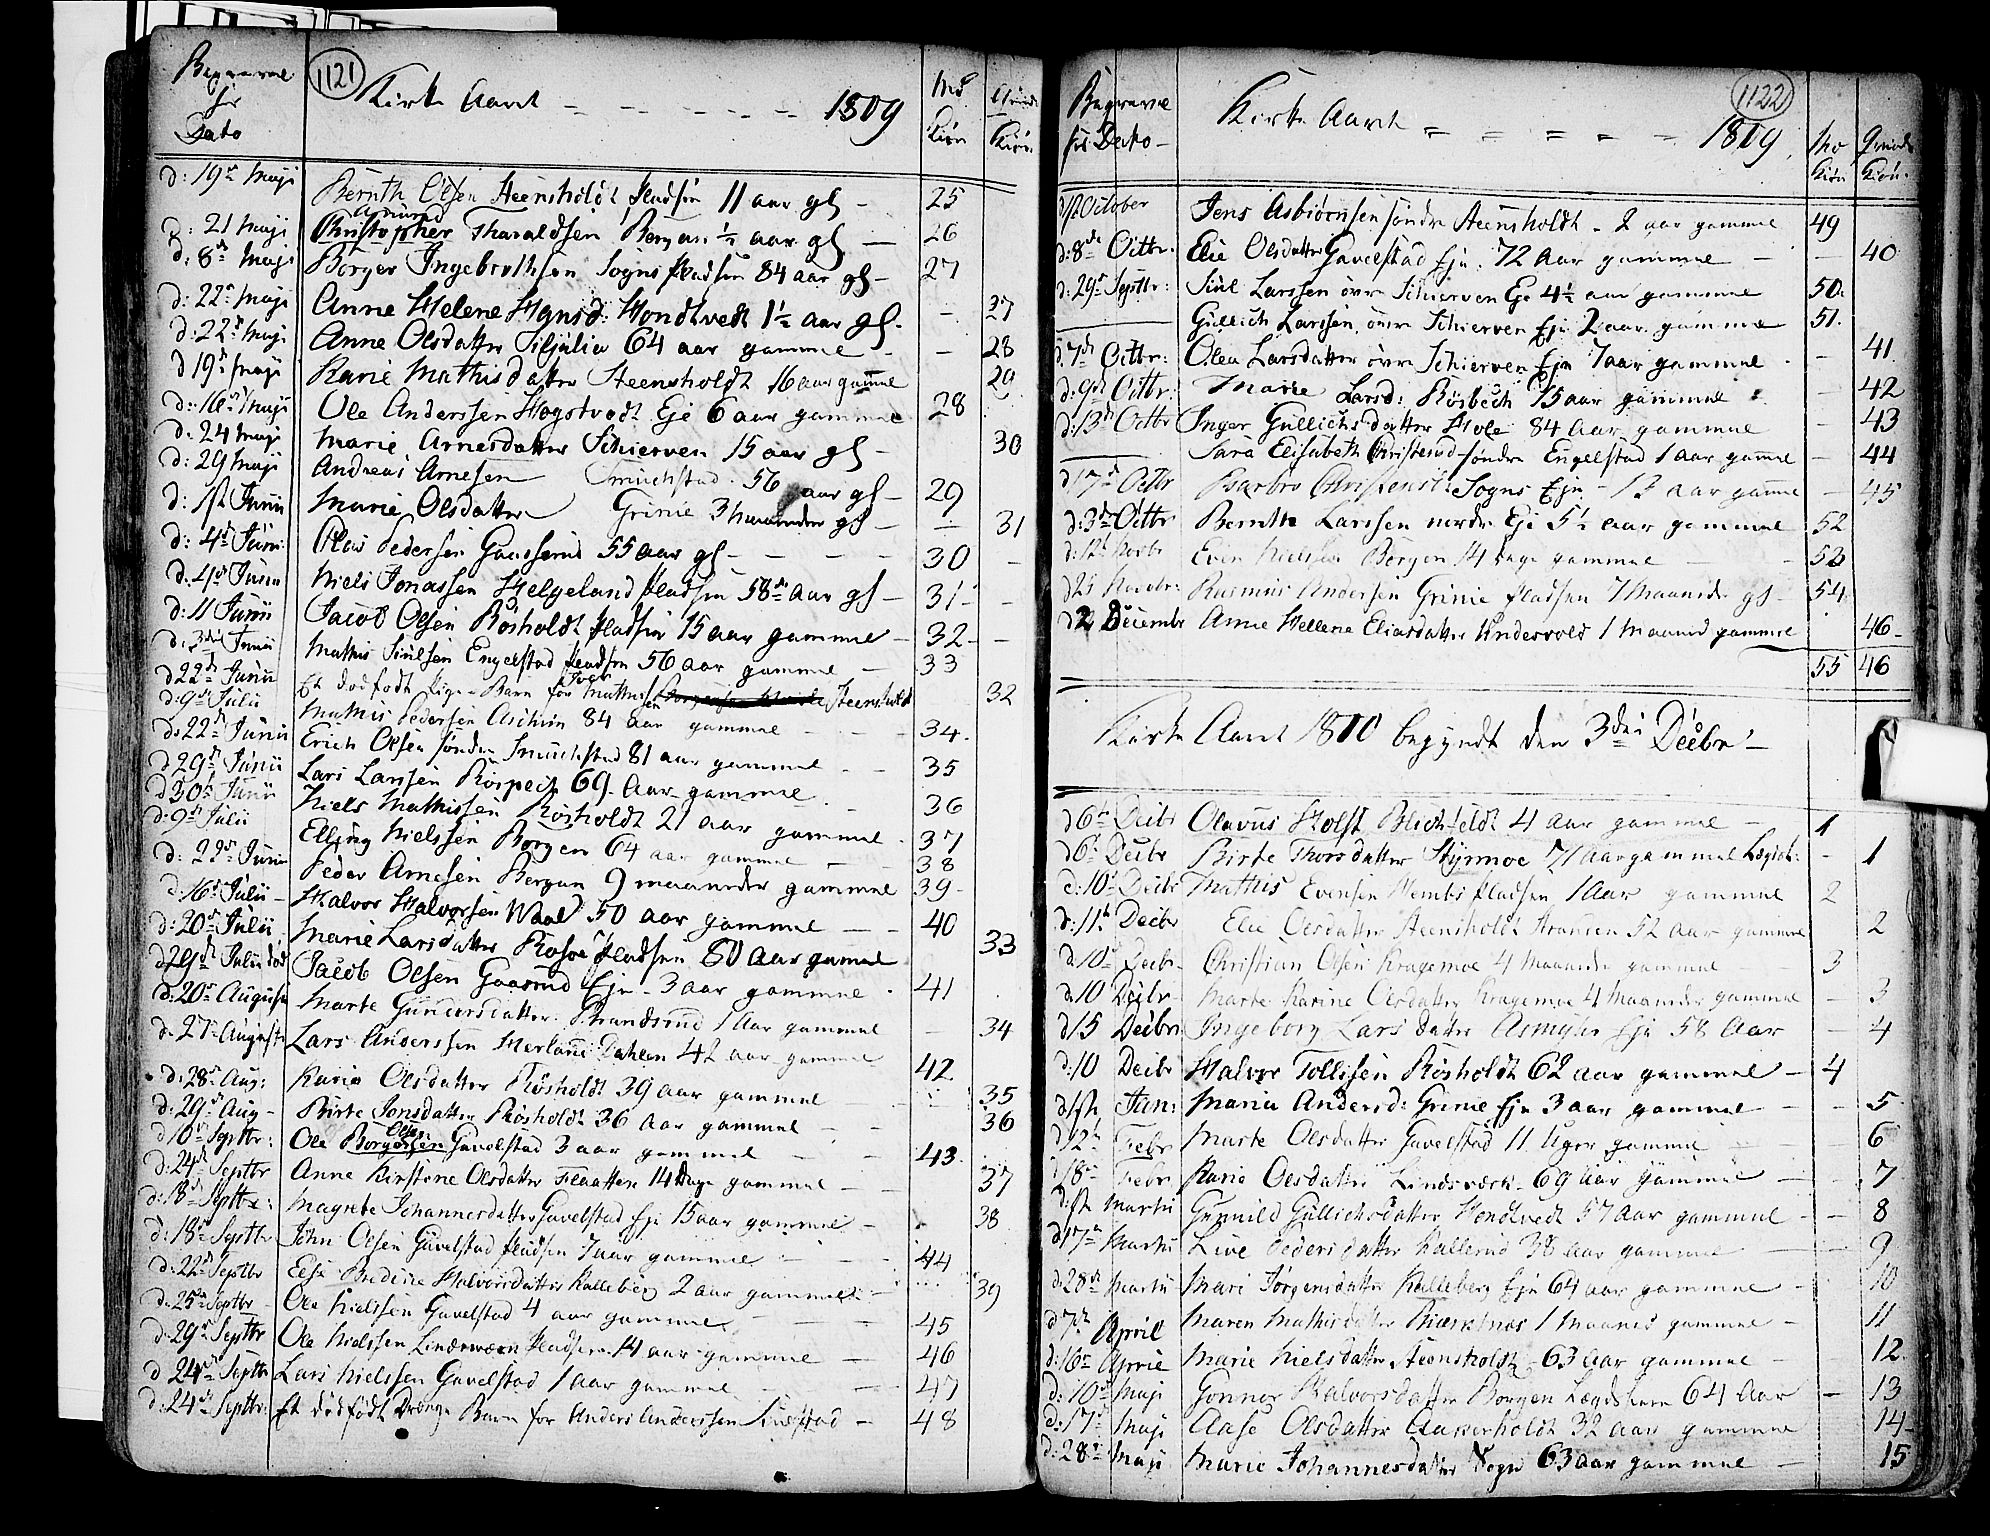 Begravne
for
Dato
1121
Kirke Aaret - - - - - - 1809
Kiøn
Kiøn
d: 19de Maji Bernth Olsen Steensholdt Pladsen 11 aar gl - 25
Amund
d: 21 Maji Christopher Tharaldsen Bergan ½ aar gl - 26
d: 8de Maji Borger Ingebrethsen Sogns Pladsen 84 aar gl - 27
d: 22de Maji Anne Helene Hansd: Hondtvedt 1½ aar gl - 27
d: 22de Maji Anne Olsdatter Siljulia 64 aar gammel - 28
d 19de Maji Karie Mathisdatter Steensholdt 16 aar gammel 29
d: 16de Maji Ole Anderssen Hogstvedt Eje 6 aar gammel 28
d: 24 Maji Marie Arnesdatter Schierven 15 aar gl - 30
d: 29 Maji Andreas Arnesen Smuchstad 56 aar gl - 29
d: 1ste Junii Marie Olsdatter Grinie 3 maaneder gl - 31
d: 4de Junii Clas Pedersen Gaasserud 55 aar gl - 30
d: 4de Junii Niels Jonassen Helgeland Pladsen 58de aar gl - 31
d: 11 Junii Jacob Olsen Rösholdt Pladsen 15 aar gammel - 32
d: 3die Junii Mathis Siulsen Engelstad Pladsen 56 aar gammel - 33
d 22de Junii Et dødfødt Pige-Barn for Iver Mathissen Steensholdt 32
d: 9de Julii Mathis Pedersen Aschim 84 aar gammel - 34
d: 22de Junii Erich Olsen søndre Smuchstad 81 aar gammel - 35
d 29de Junii Lars Larssen Röspech 69 Aar gammel - 36
d 30te Junii Niels Mathissen Rösholdt 21 aar gammel - 37
d: 9de Julii Elling Nielssen Borgen 64 aar gammel - 38
d: 23de Junii Peder Arnesen Bergan 9 maaneder gammel 39
d: 16de Julii Halvor Halvorsen Waal 50 aar gammel - 40
d: 20de Julii Marie Larsdatter Pladsen 60 Aar gammel 33
d 29de Julii Jacob Olsen Gaasrud Eje - 3 aar gammel - 41
d: 20de August Marte Gundersdatter Strandsrud 1 Aar gammel - 34
d. 27de August Lars Anderssen Dahlen 42 aar gammel 42
d: 28de Aug: Karie Olsdatter Rösholdt 39 aar gammel - 35
d: 29de Aug - Birte Jonsdatter Rösholdt 36 Aar gammel - 36
d 10de Septbr: Ole Olsen Gavelstad 3 aar gammel - 43
d: 24de Septbr Anne Kirstine Olsdatter Flaatten 14 Dage gammel - 37
d: 18de Septbr: Magrete Johannesdatter Gavelstad Eje 15 aar gammel - 38
d: 18de Septbr John Olsen Gavelstad Pladsen 7 aar gammel - 44
d: 22de Septbr Else Bredine Halvorsdatter Kalleberg 2 aar gammel - 39
d: 25de Septbr - Ole Nielssen Gavelstad 4 aar gammel - 45
d: 29de Septbr Ole Nielssen Linderværn Pladsen 14 aar gammel - 46
d 24de Septbr Lars Nielssen Gavelstad 1 aar gammel - 47
d: 24de Septbr: Et dødfødt Drenge Barn for Anders Anderssen - 48
Begravne
for Dato -
1122
Kirke Aaret = = = = - 1809
Kiøn
Qvinde
Kiøn.
October Jens Asbiørnsen søndre Steensholdt - 2 aar gammel 49
d: 8de Octbr: Elie Olsdatter Gavelstad Eje 72 Aar gammel - 40
d: 29de Septbr: Siul Larssen övre Schierven Eje 4½ aar gammel 50
Gullich Larssen övre Schierven Eje 2 aar gammel 51.
d. 7de Octbr: Olea Larsdatter övre Schierven Eje 7 aar gammel - 41
d: 9de Octbr: Marie Larsd: Rösbech 15 aar gammel - 42
d: 13de Octbr Inger Gullichsdatter Hole 84 Aar gammel - 43
Sara Elisabeth søndre Engelstad 1 Aar gammel - 44
d 17de Octbr Barbro Sogns Eje - aar gammel - 45
d: 3de Octbr Bernthe Larssen nordre Eje 5½ aar gammel 52
d: 12te Novbr Even Nielssen Borgen 14 Dage gammel - 53
d 25 Novebr: Rasmus Andersen Grinie Pladsen 7 Maaneder gl - 54
d 2 Decembr Anne Hellene Eliasdatter Undersvold 1 Maaned gammel 46
55 46
Kirke Aaret 1810 begyndt den 3die Decbr -
d 6te Decbr Olavus Holst Blichfeldt 4 aar gammel - 1
d 6te Decbr Birte Thorsdatter Styrmoe 71 aar gammel Lægds: - 1
d: 10de Decbr Mathis Evensen Nembs Pladsen 1 Aar gammel 2
d: 11te Decbr Elie Olsdatter Steensholdt Stranden 52 aar gammel 2
d. 10de Decbr - Christian Olsen Kragemoe 4 Maaneder gammel - 3
d. 10 Decbr - Marte Karine Olsdatter Kragemoe 4 Maaneder gammel - 3
d 15 Decbr Ingeborg Larsdatter Asmyhr Eje 58 Aar - 4
d: 10 Decbr Halvor Tollefsen Rösholdt 62 aar gammel - 4
d 1ste Jan: Maria Andersd: Grinie Eje 3 aar gammel - 5
d 12te Febr Marte Olsdatter Gavelstad 11 Uger gammel 6
d 18de Febr Karie Olsdatter Lindeværn 69 aar gammel - 7
d: 1ste Martii Gunnild Gullichsdatter Hondtvedt 57 Aar gammel - 8
d 17de Martii Live Pedersdatter Kallerud 38 aar gammel - 9
d: 28de Martii Mari Jørgensdatter Kalleberg Eje 64 aar gammel 10
d 7de April Maren Mathisdatter Biørknes 1 Maaned gammel - 11
d: 16de Aprie Marie Nielsdatter Steensholdt 63 aar gammel - 12.
d: 10de Maji Gonnor Halvorsdatter Borgen Lægdslem 64 Aar - 13
d: 17de Maji Aase Olsdatter Aasserholdt 32 aar gammel 14 -
d: 28de Maji Marie Johannesdatter Sogn 63 aar gammel - 15